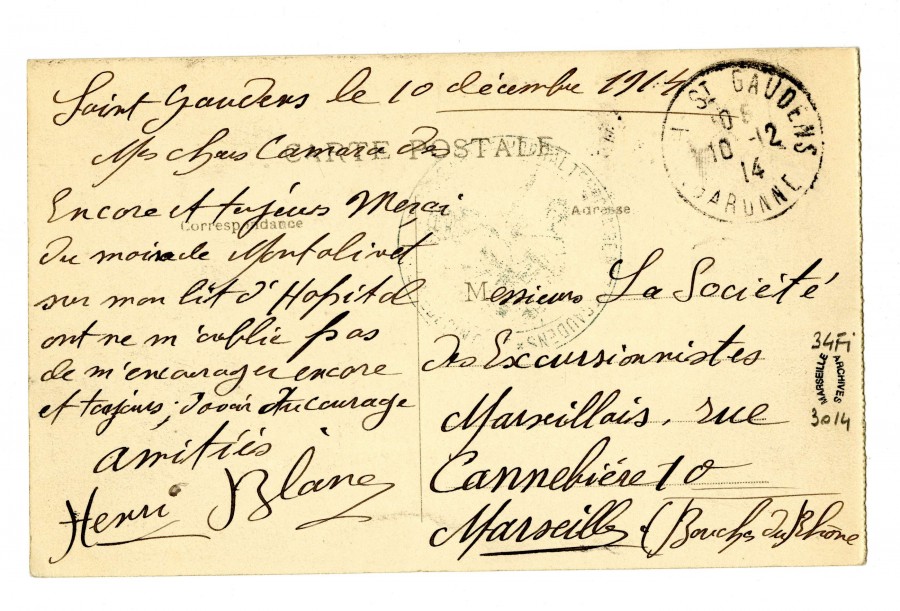 Saint Gaudens le 10 décembre 1914
Mes chers Camarades
CARTE POSTALE
Encore et tojours Merci
Correspondance
du moisde Montolivet
sur mon lit d'Hopital
ont ne m'oublie pas
de m'encourager encore
et tojours; d'avoir du courage
amitiés
Henri Blanc
ST GAUDENS
10 -12
14
GARONNE
Adresse
GAUDENS
M
Messieurs La Société
des Excursionnistes
Marseillais, rue
Cannebière 10
Marseille (Bouches du Rhône
34Fi
ARCHIVES
MARSEILLE
3014